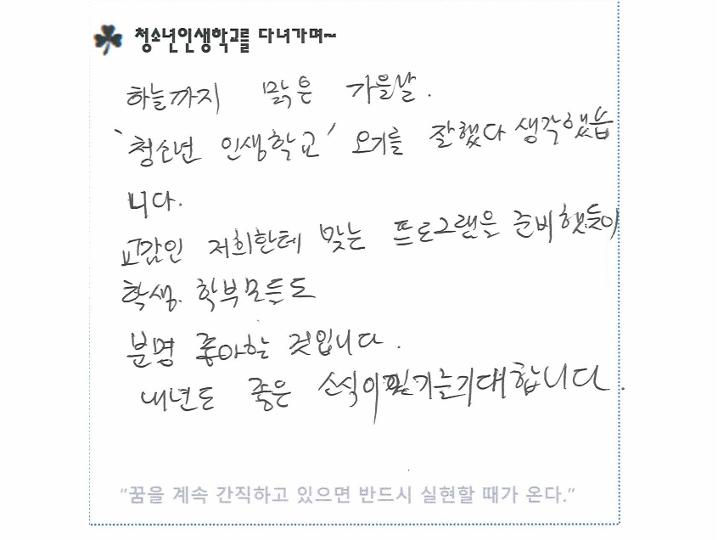 청소년인생학교를 다녀가며~
하늘까지 맑은 가을날.
'청소년 인생학교' 오기를 잘했다 생각했습
니다.
교감인 저희한테 맞는 프로그램을 준비했듯이
학생. 학부모들도
분명 좋아할 것입니다.
내년도 좋은 소식이 기대합니다.
"꿈을 계속 간직하고 있으면 반드시 실현할 때가 온다."